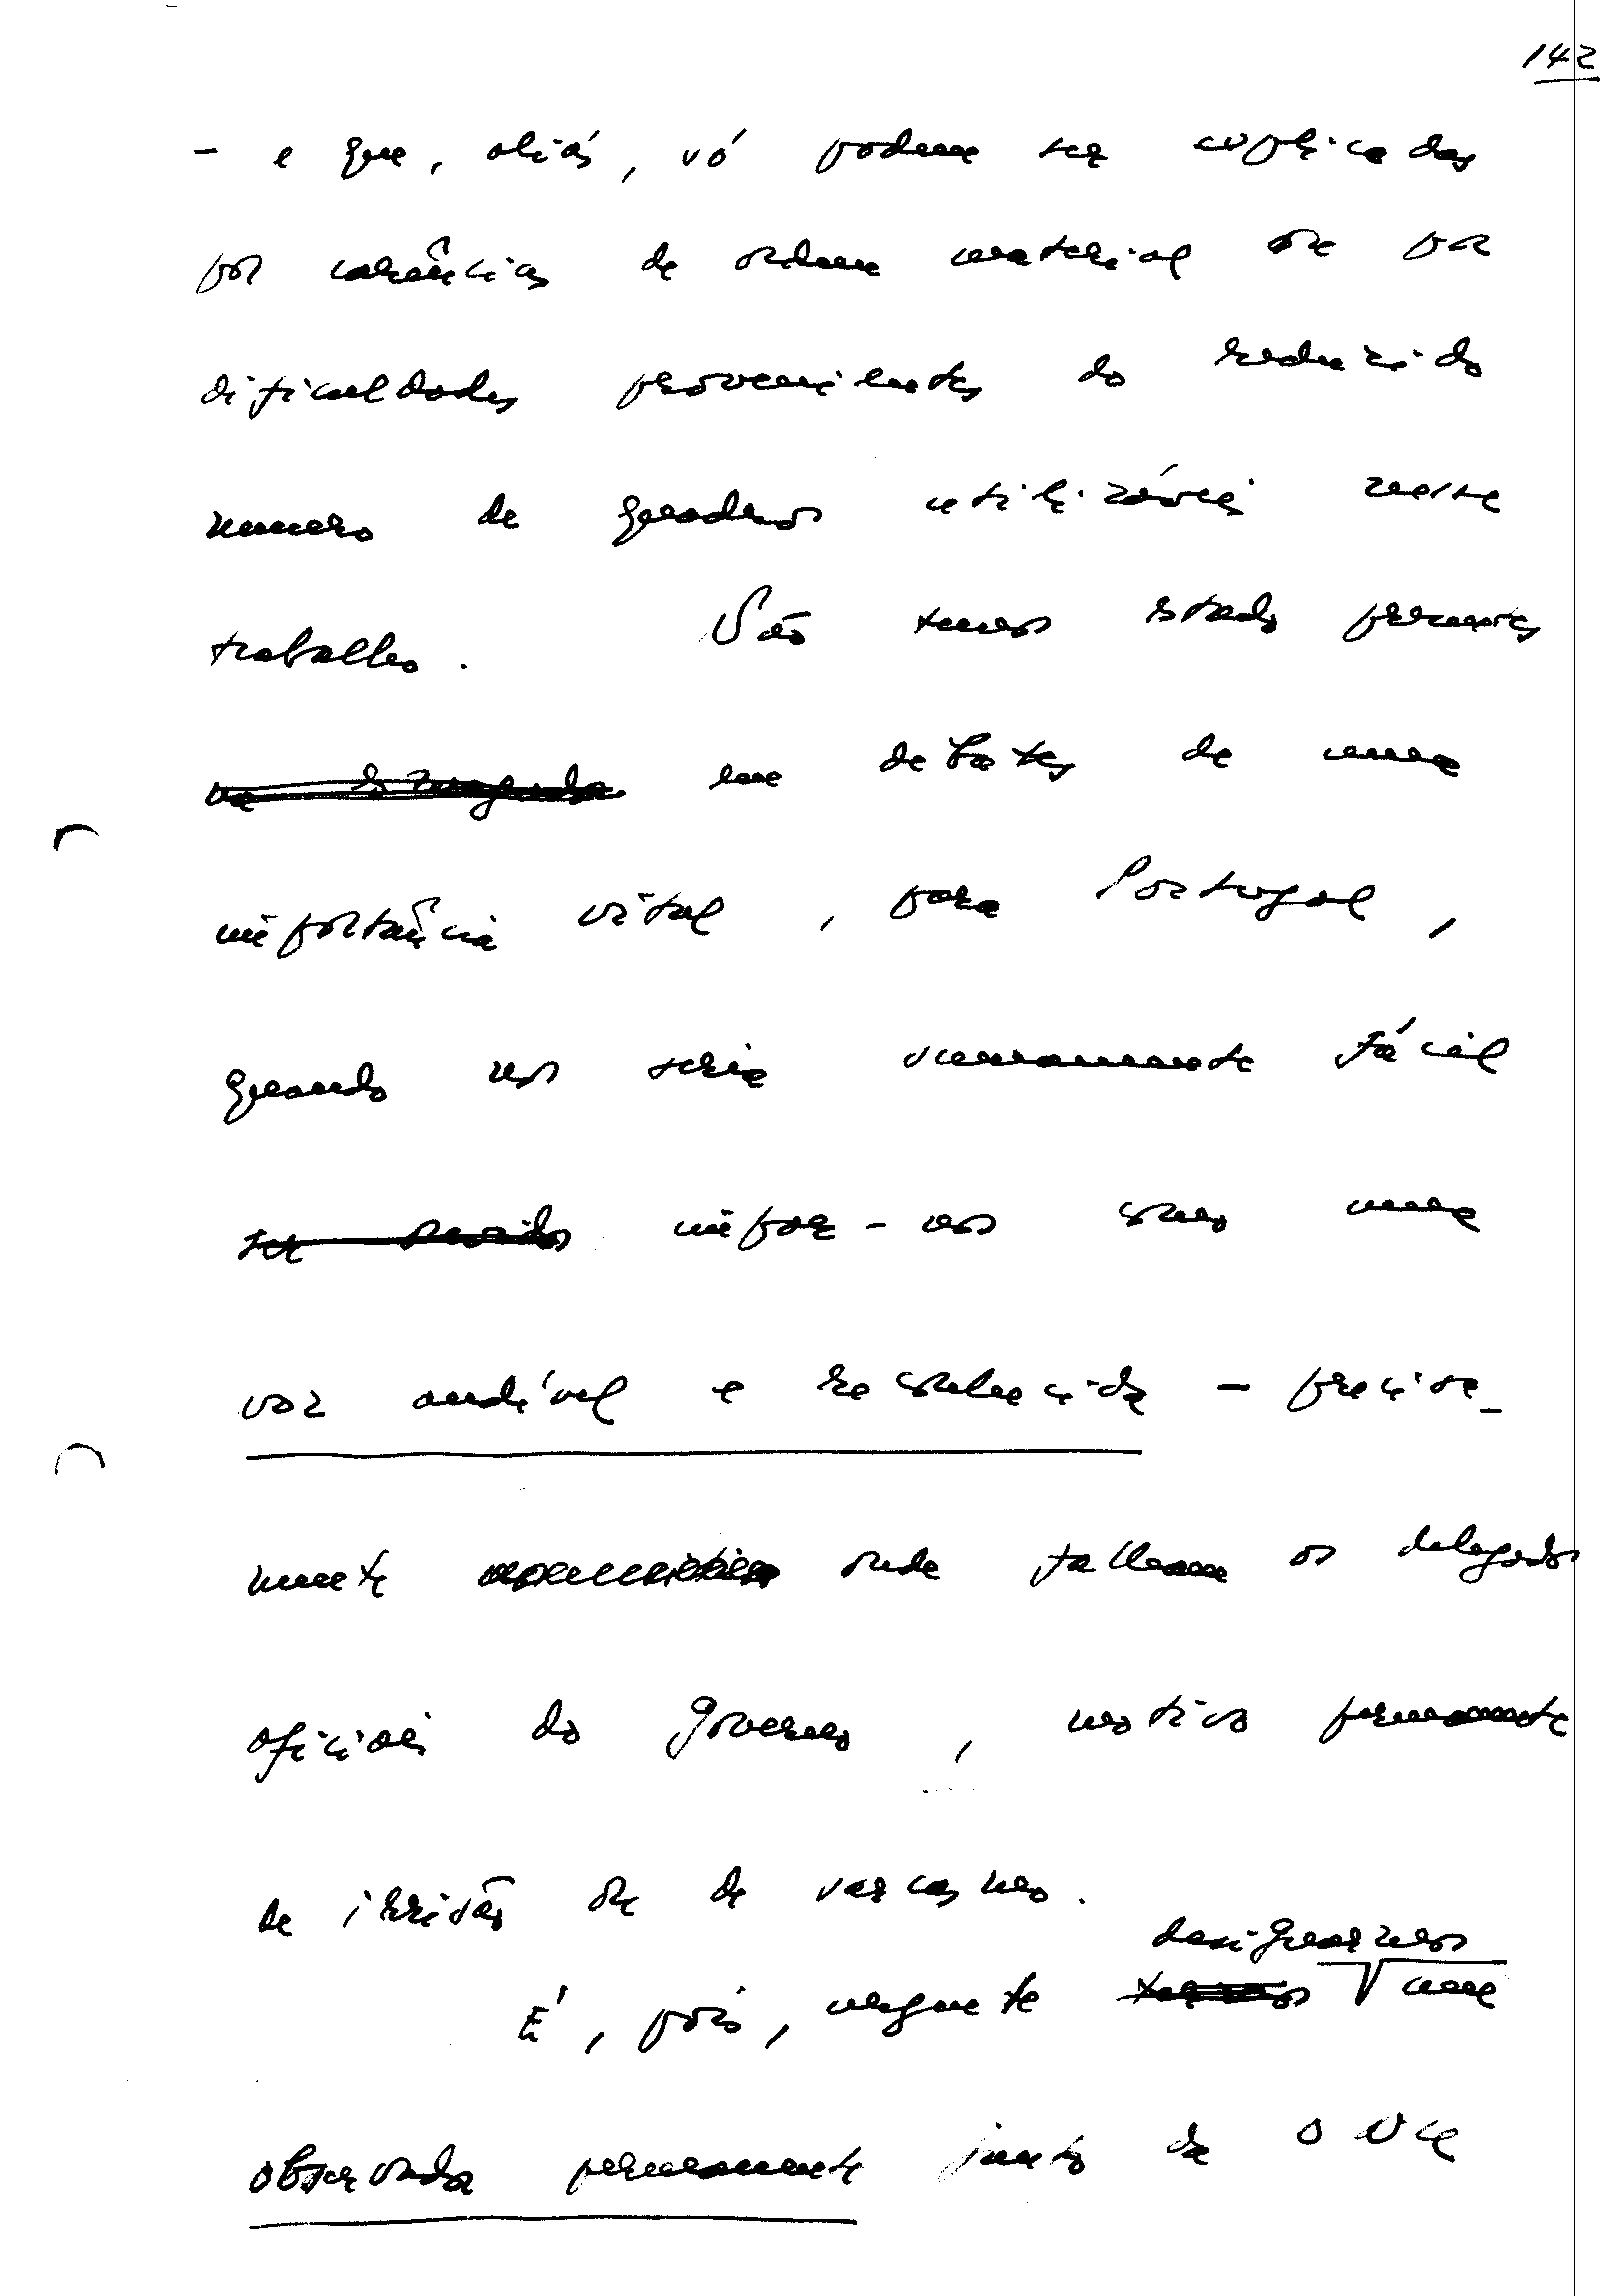 142
- e que, aliás, só podem ser explicadas
por carências de ordem material ou por
dificuldades provenientes do reduzido
numero de quadros utilizáveis neste
trabalho. Não temos estado presentes
em debates de uma
importância vital, para Portugal,
quando nos seria sumamente fácil
impor-nos como uma
voz audível e reconhecida - precisa-
mente onde falham os delegados
oficiais do governo, motivo permanente
de irrisão ou de sarcasmo.
designarmos
É, pois, urgente uma
observador permanente junto da ONU